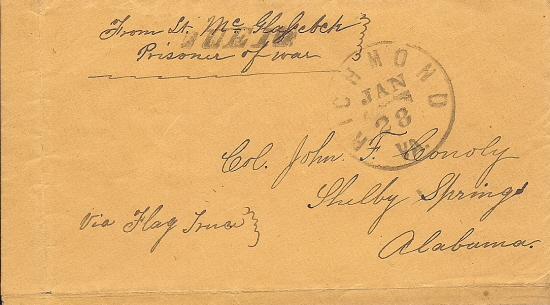 From Lt. Mc Glassock
Prisoner of war
RICHMOND
JAN
28
VA.
Col. John. F. Conoly
Shelby Springs
Alabama.
Via Flag Truce